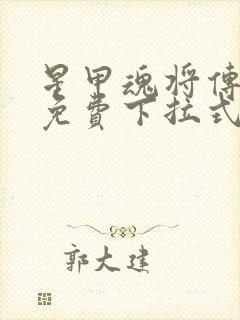 星甲魂将傳
免費下拉式
郭大建